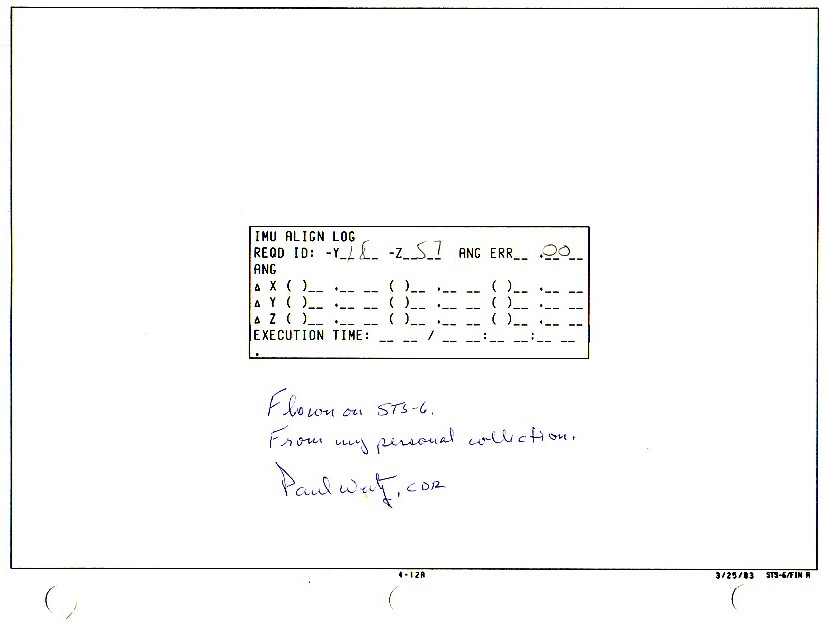 IMU ALIGN LOG
REQD ID: -Y 18 -Z 57 ANG ERR__ .00__
ANG
Δ X ( )__ .__ __ ( )__ .__ __ ( )__ .__ __
Δ Y ( )__ .__ __ ( )__ .__ __ ( )__ .__ __
Δ Z ( )__ .__ __ ( )__ .__ __ ( )__ .__ __
EXECUTION TIME: __ __ / __ __:__ __:__ __
Flown on STS-6.
From my personal collection.
Paul Weitz, CDR
4-12A 3/25/83 STS-6/FIN A